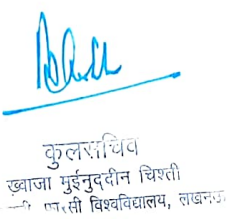 कुलसचिव
ख्वाजा मुईनुद्दीन चिश्ती
विश्वविद्यालय, लखनऊ